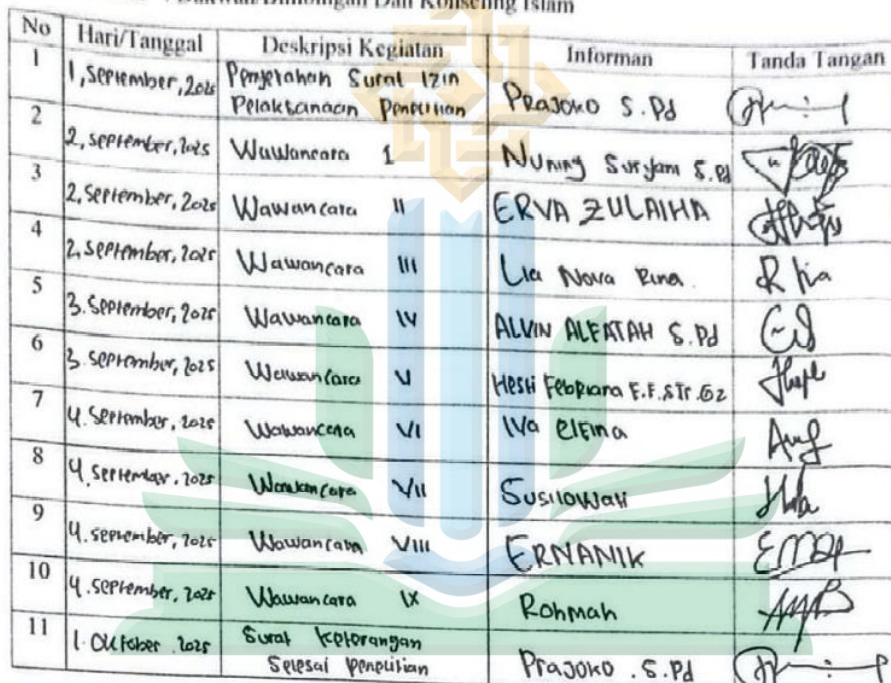 Dan Konseling Islam
No Hari/Tanggal Deskripsi Kegiatan Informan Tanda Tangan
1 1, September, 2025 Penyerahan Surat Izin
Pelaksanaan Penelitian Prajoko S.Pd
2 2, September, 2025 Wawancara I Nuning Suryani S.Pd
3 2, September, 2025 Wawancara II ERVA ZULAIHA
4 2, September, 2025 Wawancara III Lia Nova Rina
5 3. September, 2025 Wawancara IV ALVIN ALFATAH S.Pd
6 3. September, 2025 Wawancara V Hesti Febriana E.F.STr.Gz
7 4. September, 2025 Wawancara VI Iva
8 4. September, 2025 Wawancara VII Susilowati
9 4. september, 2025 Wawancara VIII ERNANIK
10 4. September, 2025 Wawancara IX Rohmah
11 1. Oktober 2025 Surat keterangan
Selesai penelitian Prajoko . S.Pd